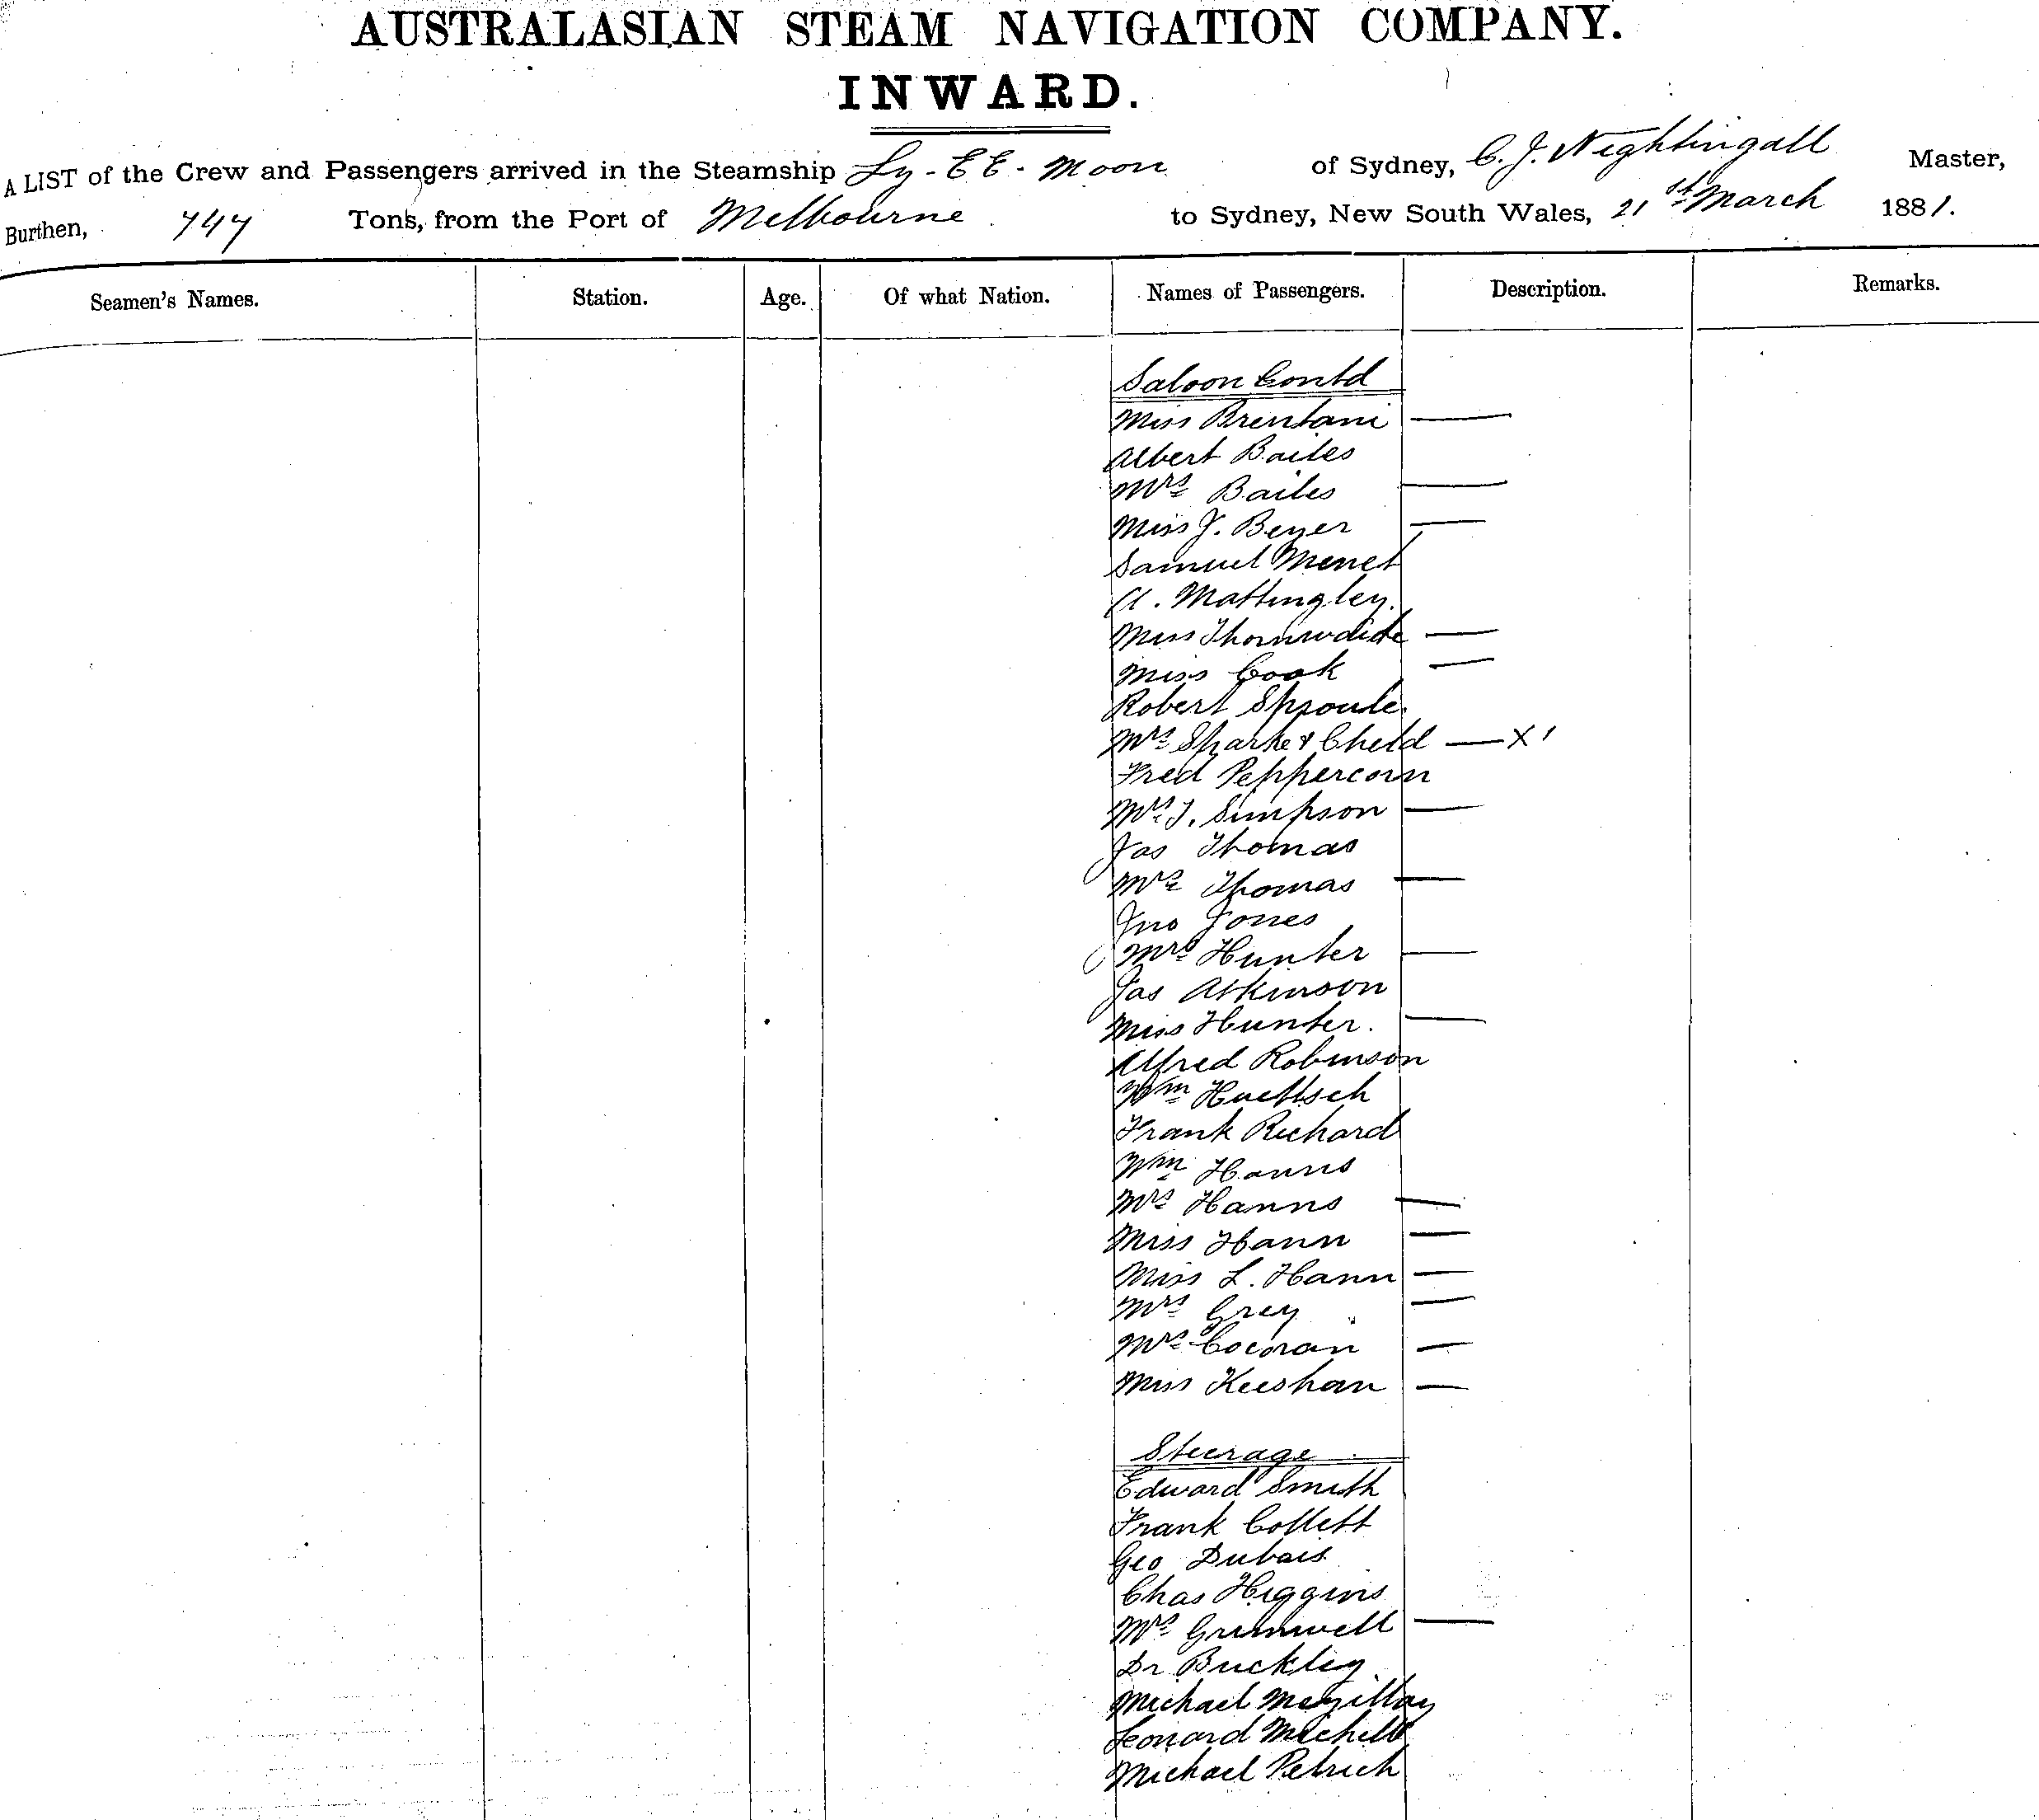 AUSTRALASIAN STEAM NAVIGATION COMPANY.
INWARD.
A LIST of the Crew and Passengers arrived in the Steamship Ly-EE-Moon of Sydney, C. J. Nightingall Master,
Burthen, 747 Tons, from the Port of Melbourne to Sydney, New South Wales, 21st March 1881.
Seamen's Names. Station. Age. Of what Nation. Names of Passengers. Description. Remarks.
Saloon Contd
Miss Brentani —
Albert Bailes
Mrs Bailes —
Miss J. Beyer —
Samuel Menet
A. Mattingley.
Miss Thornwaite —
Miss Cook —
Robert Sproule.
Mrs Sparke & Child — X 1
Fred Peppercorn
Mrs J. Simpson —
Jas Thomas
Mrs Thomas —
Jno Jones
Mrs Hunter —
Jas Atkinson
Miss Hunter. —
Alfred Robinson
Wm Huettsch
Frank Richard
Wm Hanns
Mrs Hanns —
Miss Hann —
Miss L. Hann —
Mrs Grey —
Mrs Cocoran —
Miss Keeshan —
Steerage
Edward Smith
Frank Collett
Geo Dubois
Chas Higgins
Mrs Grumwell —
Dr Buckley
Michael
Leonard
Michael Petrich